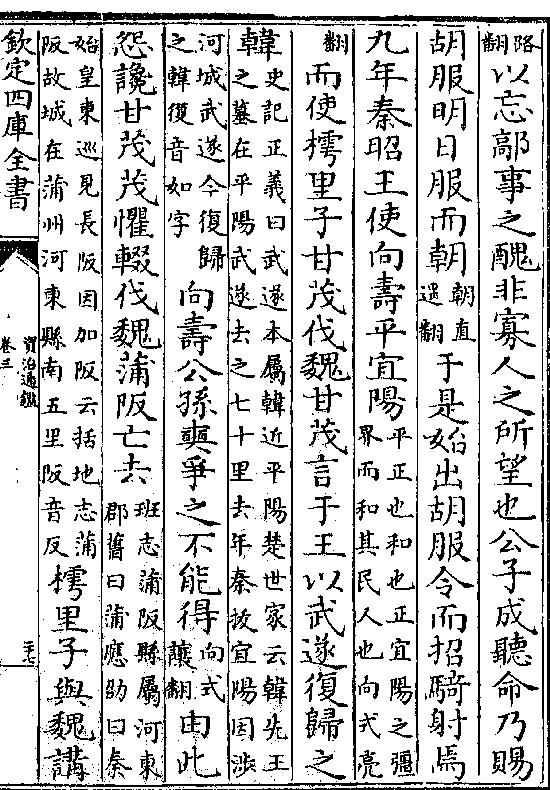 路翻以忘鄗事之醜非寡人之所望也公子成聽命乃賜
胡服明日服而朝朝直遥翻于是始出胡服令而招騎射焉
九年秦昭王使向壽平宜陽平正也和也正宜陽之疆界而和其民人也向式亮
翻而使樗里子甘茂伐魏甘茂言于王以武遂復歸之
韓史記正義曰武遂本屬韓近平陽楚世家云韓先王之墓在平陽武遂去之七十里去年秦拔宜陽因涉
河城武遂今復歸之韓復音如字向壽公孫奭爭之不能得向式讓翻由此
怨讒甘茂茂懼輟伐魏蒲阪亡去班志蒲阪縣屬河東郡舊曰蒲應劭曰秦
始皇東巡見長阪因加阪云括地志蒲阪故城在蒲州河東縣南五里阪音反樗里子與魏講
欽定四庫全書
資治通鑑
卷三
三七